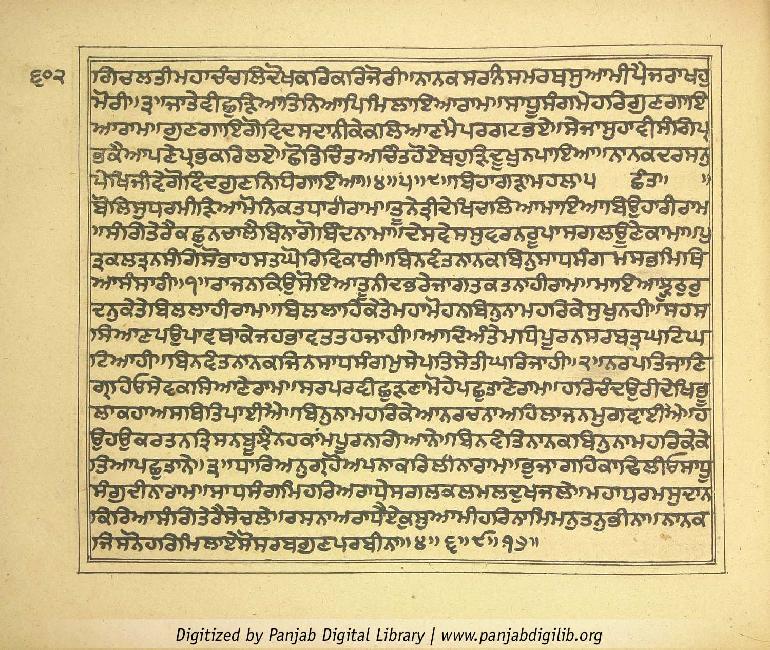 ੬੦੨
ਗਿਚਲਤੀਮਹਾਚੰਚਲਿਦੋਖਕਰਿਕਰਿਜੋਰੀ॥ਨਾਨਕਸਰਨਿਸਮਰਥਸੁਆਮੀਪੈਜਰਾਖਹੁ
ਮੋਰੀ॥੩॥ਜਾਤੇਵੀਛੁੜਿਆਤਿਨਿਆਪਿਮਿਲਾਇਆਰਾਮ॥ਸਾਧੂਸੰਗਮੇਹਰਿਗੁਣਗਾਇ
ਆਰਾਮ॥ਗੁਣਗਾਇਗੋਵਿਦਸਦਾਨੀਕੇਕਲਿਆਣਮੈਪਰਗਟਭਏ॥ਸੇਜਾਸੁਹਾਵੀਸੰਗਿਪ੍ਰ
ਭਕੈਆਪਣੇਪ੍ਰਭਕਰਿਲਏ॥ਛੋਡਿਚਿੰਤਅਚਿੰਤਹੋਏਬਹੁੜਿਦੂਖੁਨਪਾਇਆ॥ਨਾਨਕਦਰਸਨੁ
ਪੇਖਿਜੀਵੇਗੋਵਿੰਦਗੁਣਨਿਧਿਗਾਇਆ॥੪॥੫॥੮॥ਬਿਹਾਗੜਾਮਹਲਾ੫ ਛੰਤ॥ ॥
ਬੋਲਿਸੁਧਰਮੀੜਿਆਮੋਨਿਕਤਧਾਰੀਰਾਮ॥ਤੂਨੇਤ੍ਰੀਦੇਖਿਚਲਿਆਮਾਇਆਬਿਉਹਾਰੀਰਾਮ
॥ਸੰਗਿਤੇਰੈਕਛੁਨਚਾਲੈਬਿਨਾਗੋਬਿੰਦਨਾਮਾ॥ਦੇਸਵੇਸਸੁਵਰਨਰੂਪਾਸਗਲਊਣੇਕਾਮਾ॥ਪੁ
ਤ੍ਰਕਲਤ੍ਰਨਸੰਗਿਸੋਭਾਹਸਤਘੋਰਿਵਿਕਾਰੀ॥ਬਿਨਵੰਤਨਾਨਕਬਿਨੁਸਾਧਸੰਗਮਸਭਮਿਥਿ
ਆਸੰਸਾਰੀ॥੧॥ਰਾਜਨਕਿਉਸੋਇਆਤੂਨੀਦਭਰੇਜਾਗਤਕਤਨਾਹੀਰਾਮ॥ਮਾਇਆਝੂਠੁਰੁ
ਦਨੁਕੇਤੇਬਿਲਲਾਹੀਰਾਮ॥ਬਿਲਲਾਹਿਕੇਤੇਮਹਾਮੋਹਨਬਿਨੁਨਾਮਹਰਿਕੇਸੁਖੁਨਹੀ॥ਸਹਸ
ਸਿਆਣਪਉਪਾਵਥਾਕੇਜਹਭਾਵਤਤਹਜਾਹੀ॥ਆਦਿਅੰਤੇਮਧਿਪੂਰਨਸਰਬਤ੍ਰਘਟਿਘ
ਟਿਆਹੀ॥ਬਿਨਵੰਤਨਾਨਕਜਿਨਸਾਧਸੰਗਮੁਸੇਪਤਿਸੇਤੀਘਰਿਜਾਹੀ॥੨॥ਨਰਪਤਿਜਾਣਿ
ਗ੍ਰਹਿਓਸੇਵਕਸਿਆਣੇਰਾਮ॥ਸਰਪਰਵੀਛੁੜਣਾਮੋਹੇਪਛੁਤਾਣੇਰਾਮ॥ਹਰਿਚੰਦਉਰੀਦੇਖਿਭੂ
ਲਾਕਹਾਅਸਥਿਤਿਪਾਈਐ॥ਬਿਨੁਨਾਮਹਰਿਕੇਆਨਰਚਨਾਅਹਿਲਾਜਨਮੁਗਵਾਈਐ॥ਹ
ਉਹਉਕਰਤਨਤ੍ਰਿਸਨਬੂਝੈਨਹਕਾਂਮਪੂਰਨਗਿਆਨੇ॥ਬਿਨਵੰਤਿਨਾਨਕਬਿਨੁਨਾਮਹਰਿਕੇਕੇ
ਤਿਆਪਛੁਤਾਨੇ॥੩॥ਧਾਰਿਅਨੁਗ੍ਰਹੋਅਪਨਾਕਰਿਲੀਨਾਰਾਮ॥ਭੁਜਾਗਹਿਕਾਢਿਲੀਓਸਾਧੂ
ਸੰਗੁਦੀਨਾਰਾਮ॥ਸਾਧਸੰਗਮਿਹਰਿਅਰਾਧੇਸਗਲਕਲਮਲਦੁਖਜਲੇ॥ਮਹਾਧਰਮਸੁਦਾਨ
ਕਿਰਿਆਸੰਗਿਤੇਰੈਸੇਚਲੇ॥ਰਸਨਾਅਰਾਧੈਏਕੁਸੁਆਮੀਹਰਿਨਾਮਿਮਨੁਤਨੁਭੀਨਾ॥ਨਾਨਕ
ਜਿਸਨੋਹਰਿਮਿਲਾਏਸੋਸਰਬਗੁਣਪਰਬੀਨਾ॥੪॥੬॥੯॥੧੭॥
Digitized by Panjab Digital Library | www.panjabdigilib.org